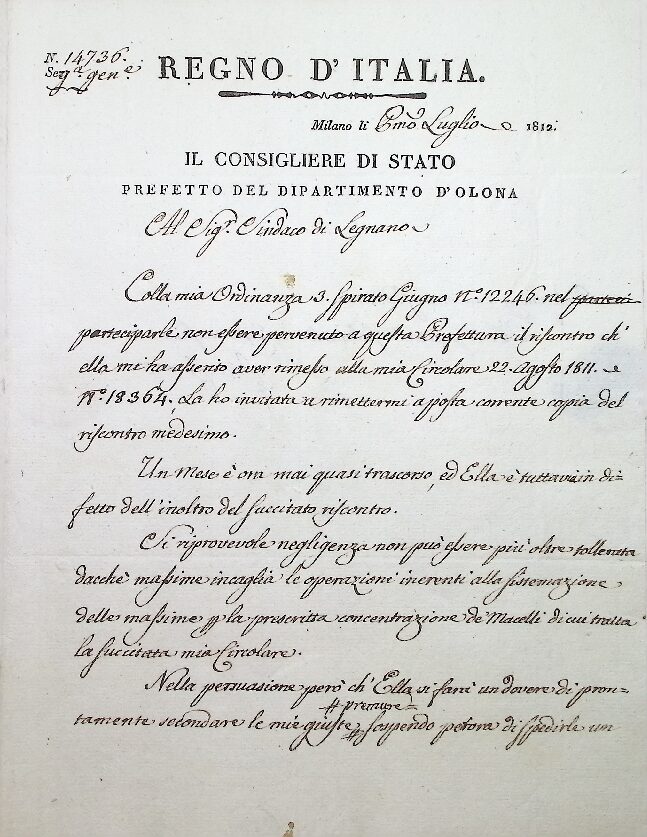 N. 14736.
Sez.ª gen.e
REGNO D'ITALIA.
Milano li Primo Luglio 1812.
IL CONSIGLIERE DI STATO
PREFETTO DEL DIPARTIMENTO D'OLONA
Al Sig.r Sindaco di Legnano
Colla mia Ordinanza 3. spirato Giugno N.º 12246. nel parteci-
parteciparle non essere pervenuto a questa Prefettura il riscontro ch'
ella mi ha asserito aver rimesso alla mia Circolare 22. Agosto 1811. e
N.º 18364. La ho invitata a rimettermi a posta corrente copia del
riscontro medesimo.
Un Mese è ora mai quasi trascorso, ed Ella è tuttavia in di=
fetto dell'inoltro del succitato riscontro.
Si riprovevole negligenza non può essere più oltre tollerata
dacchè massime incaglia le operazioni inerenti alla sistemazione
delle massime la prescritta concentrazione de' Macelli di cui tratta
la succitata mia Circolare.
Nella persuasione però ch'Ella si farà un dovere di pron=
# premure =
tamente secondare le mie giuste # sospendo per ora di spedirle un